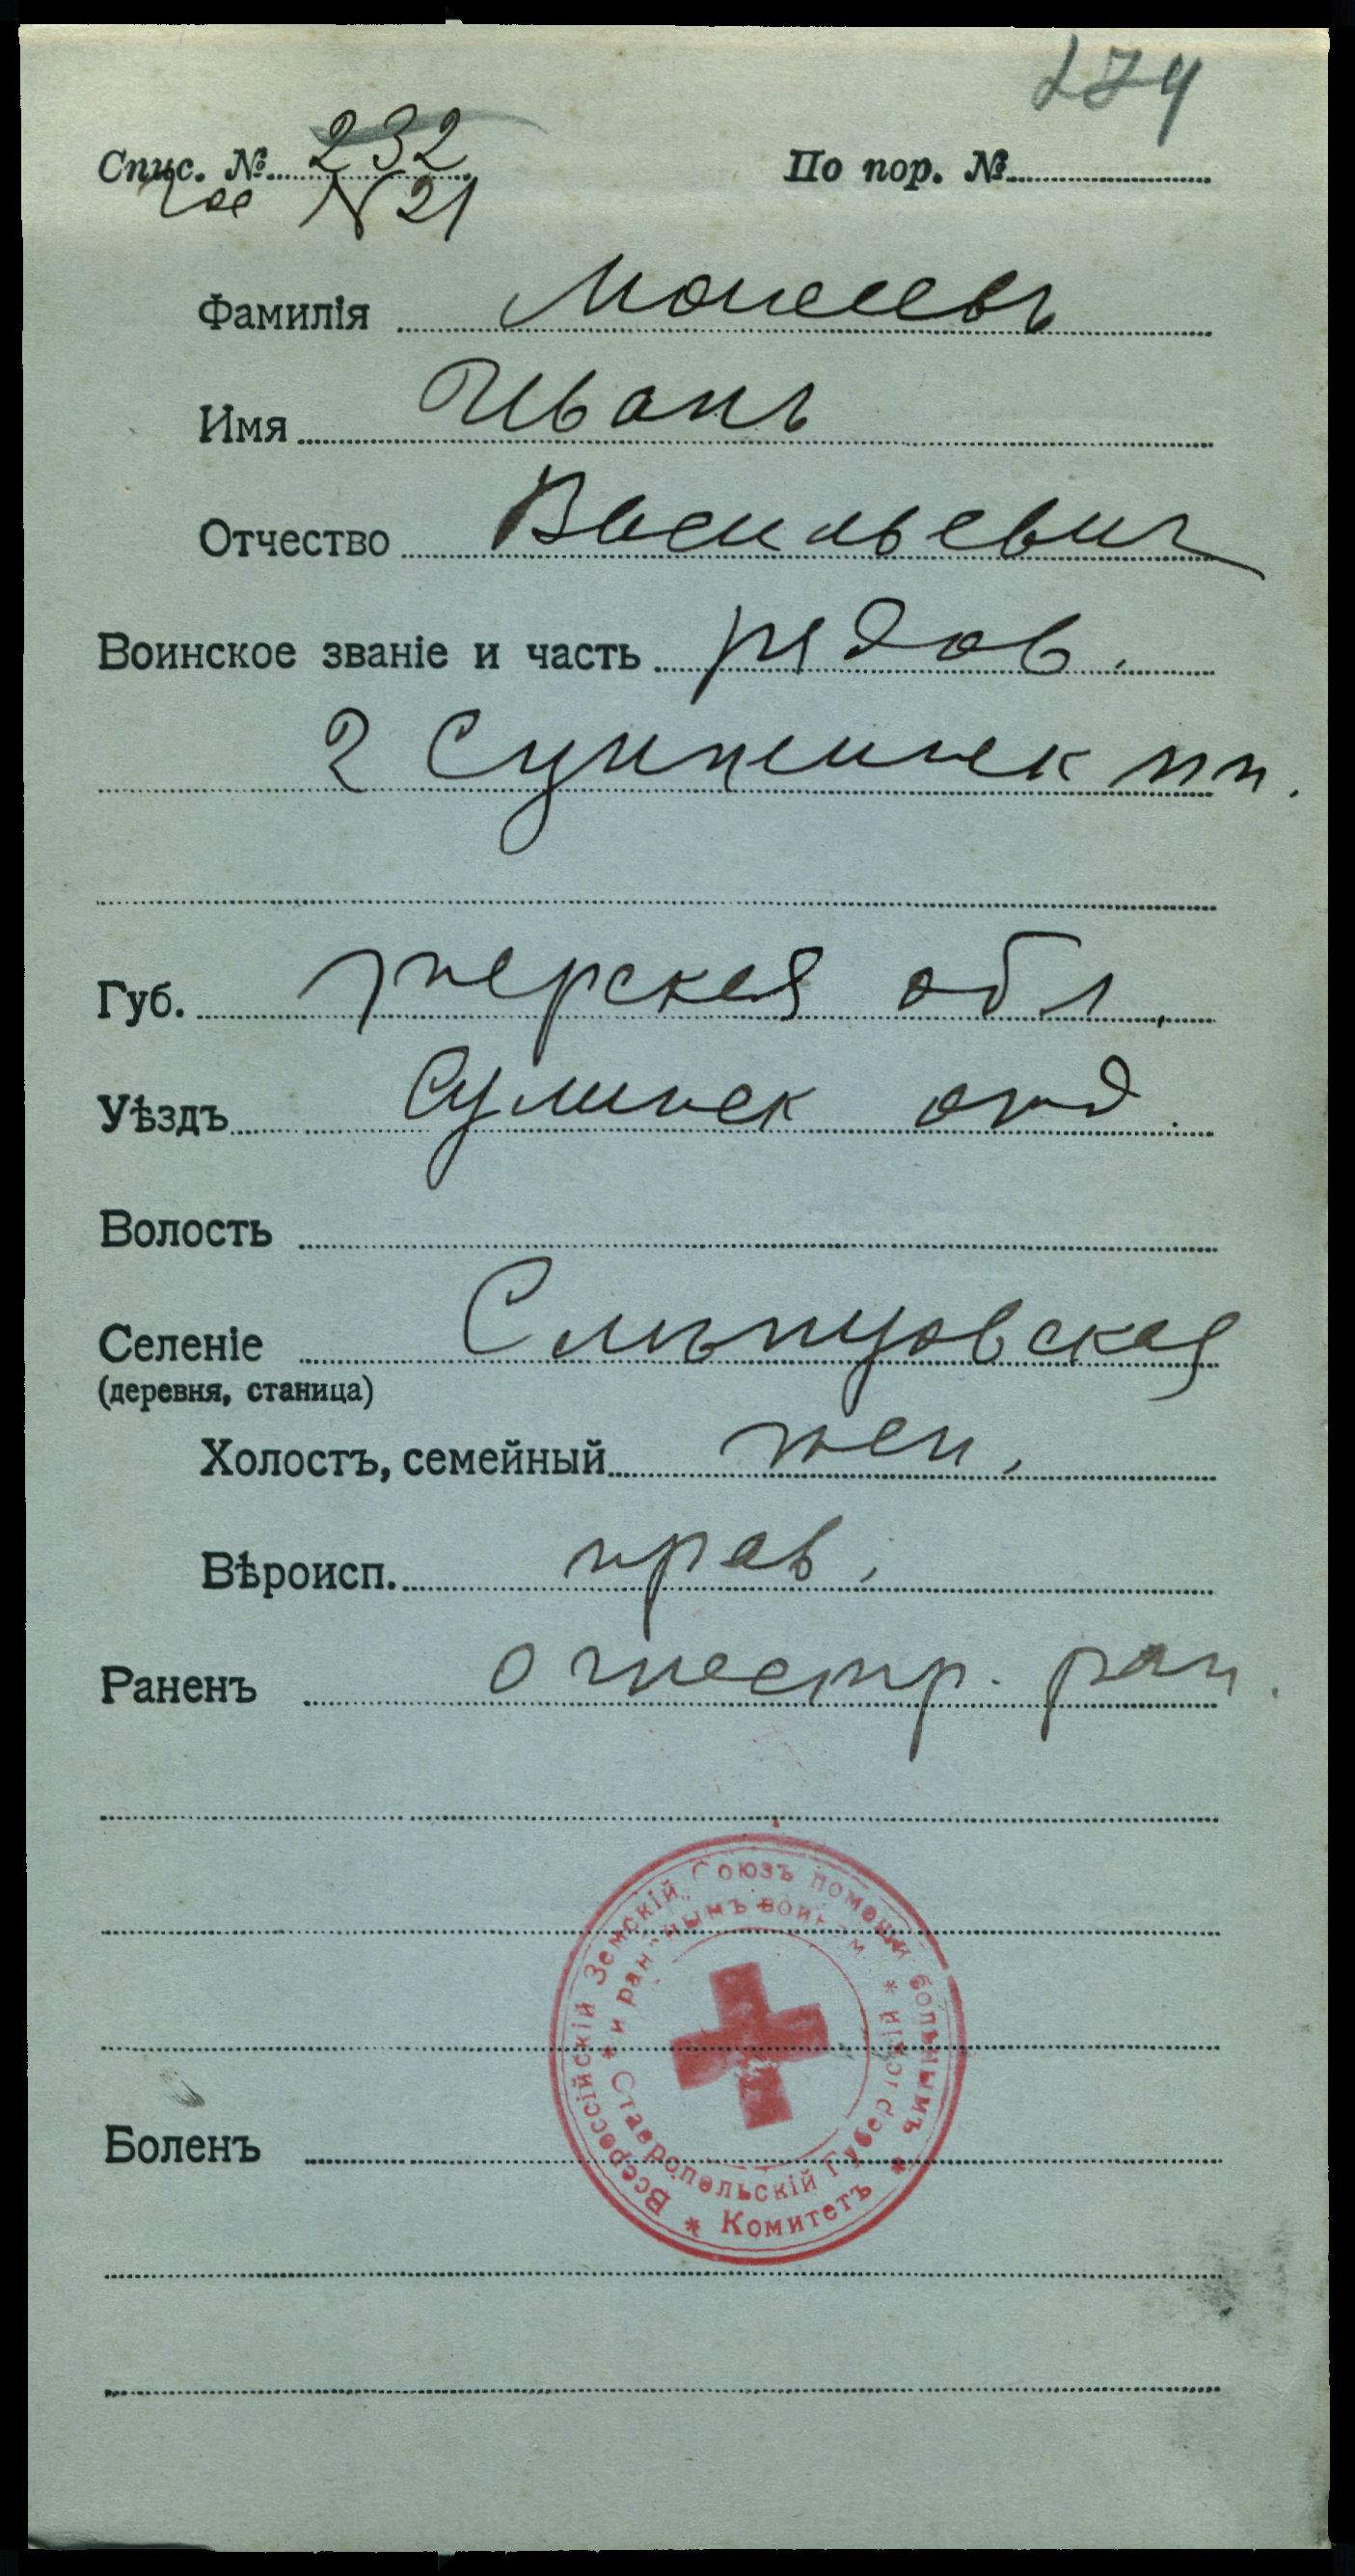 274
Спис. № 232 По пор. №
N 21
Фамилія Моисеевъ
Имя Иванъ
Отчество Васильевич
Воинское званіе и часть рядов.
2 Сунженск пп.
Губ. терская обл.
Уѣздъ отд.
Волость
Селеніе Слѣпцовская
(деревня, станица)
Холостъ, семейный жен.
Вѣроисп. прав.
Раненъ огнестр. ран.
Всероссійскій Земскій Союзъ помощи больнымъ
и раненымъ воинам
Ставропольскій Губернскій
Комитетъ
Боленъ